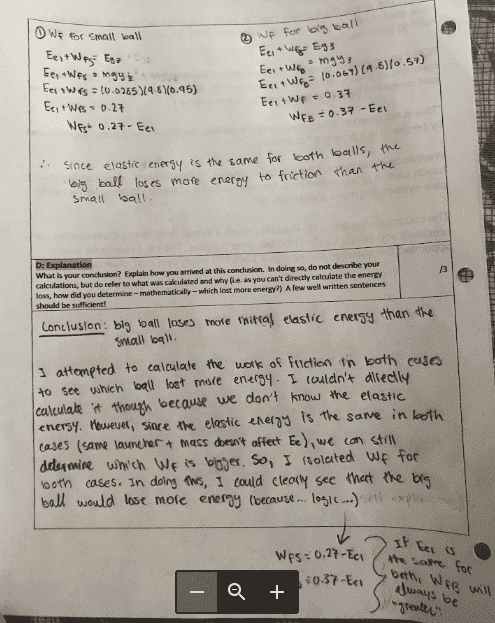 ① WF for small ball
Ee1 + WFs = Eg2
Ee1 + WFs = mgy2
Ee1 + WFs = (0.0285)(9.8)(0.95)
Ee1 + WFs = 0.27
WFs = 0.27 - Ee1
② WF for big ball
Ee1 + WFB = Eg3
Ee1 + WFB = mgy3
Ee1 + WFB = (0.067)(9.8)(0.57)
Ee1 + WF = 0.37
WFB = 0.37 - Ee1
∴ since elastic energy is the same for both balls, the
big ball loses more energy to friction than the
small ball.
D: Explanation
What is your conclusion? Explain how you arrived at this conclusion. In doing so, do not describe your
calculations, but do refer to what was calculated and why (i.e. as you can't directly calculate the energy
loss, how did you determine – mathematically – which lost more energy?) A few well written sentences
should be sufficient!
/3
Conclusion: big ball loses more initial elastic energy than the
small ball.
I attempted to calculate the work of friction in both cases
to see which ball lost more energy. I couldn't directly
calculate it though because we don't know the elastic
energy. However, since the elastic energy is the same in both
cases (same launcher + mass doesn't affect Ee), we can still
determine which WF is bigger. So, I isolated WF for
both cases. In doing this, I could clearly see that the big
ball would lose more energy (because... logic...)
WFS = 0.27-Ee1
=0.37-Ee1
If Ee1 is
the same for
both, WFB will
always be
"greater".